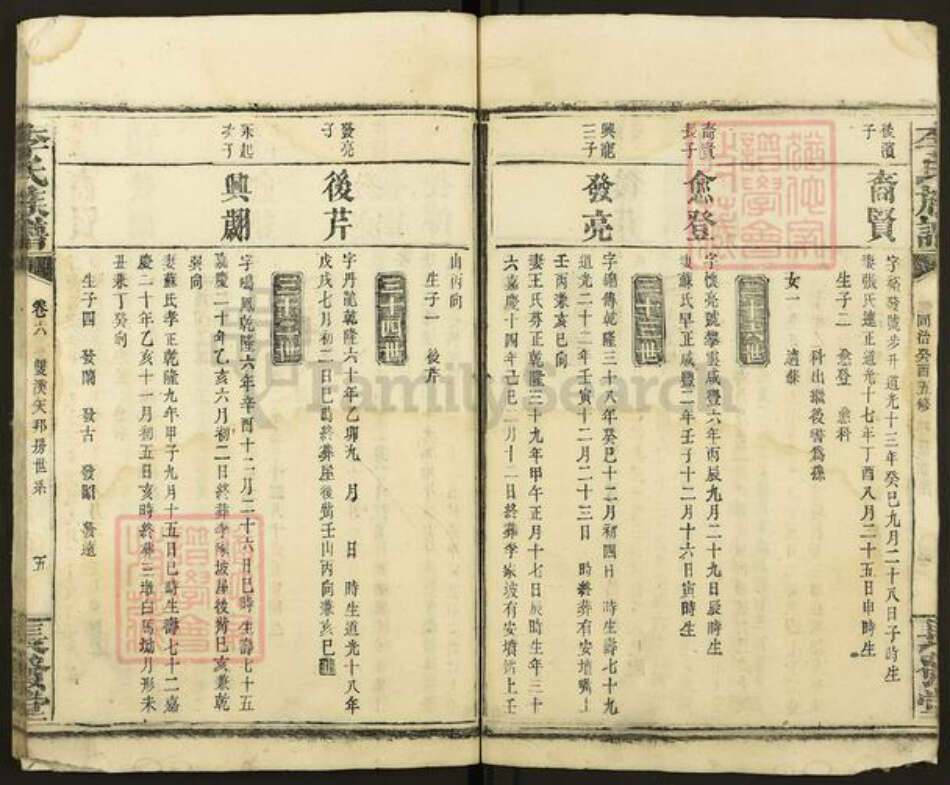 後
子
裔賢
字裕發號步升道光十三年癸巳九月二十八日子時生
妻張氏連正道光十七年丁酉八月二十五日申時生
生子二 愈登 愈科
科出繼後
女一 適蘇
三十六世
裔賢
長子
愈登
字懷亮號攀裏咸豐六年丙辰九月二十九日辰時生
妻蘇氏早正咸豐二年壬子十二月十六日寅時生
三十三世
興龍
三子
發亮
字 傳乾隆三十八年癸巳十二月初四日 時生壽七十九
道光二十二年壬寅十二月二十三日 時終葬有安墳
壬丙兼亥巳向
妻王氏芬正乾隆三十九年甲午正月十七日辰時生年三十
六嘉慶十四年己巳二月十二日終葬李家坡有安墳 上壬
山丙向
生子一 後芹
三十四世
發亮
子
後芹
字丹 乾隆六十年乙卯九 月 日 時生道光十八年
戊戌七月初二日巳時終葬屋後 壬山丙向兼亥巳
三十二世
永起
興翽
字鳴鳳乾隆六年辛酉十二月二十六日巳時生壽七十五
嘉慶二十年乙亥六月初二日終葬李家坡屋後 巳亥兼乾
巽向
妻蘇氏孝正乾隆九年甲子九月十五日巳時生壽七十二嘉
慶二十年乙亥十一月初五日亥時終葬三墩白馬坳月形未
丑兼丁癸
生子四 發蘭 發古 發昭 發遠
李氏族譜
卷六 雙溪天邦房世系
五
同治癸酉五修
FamilySearch